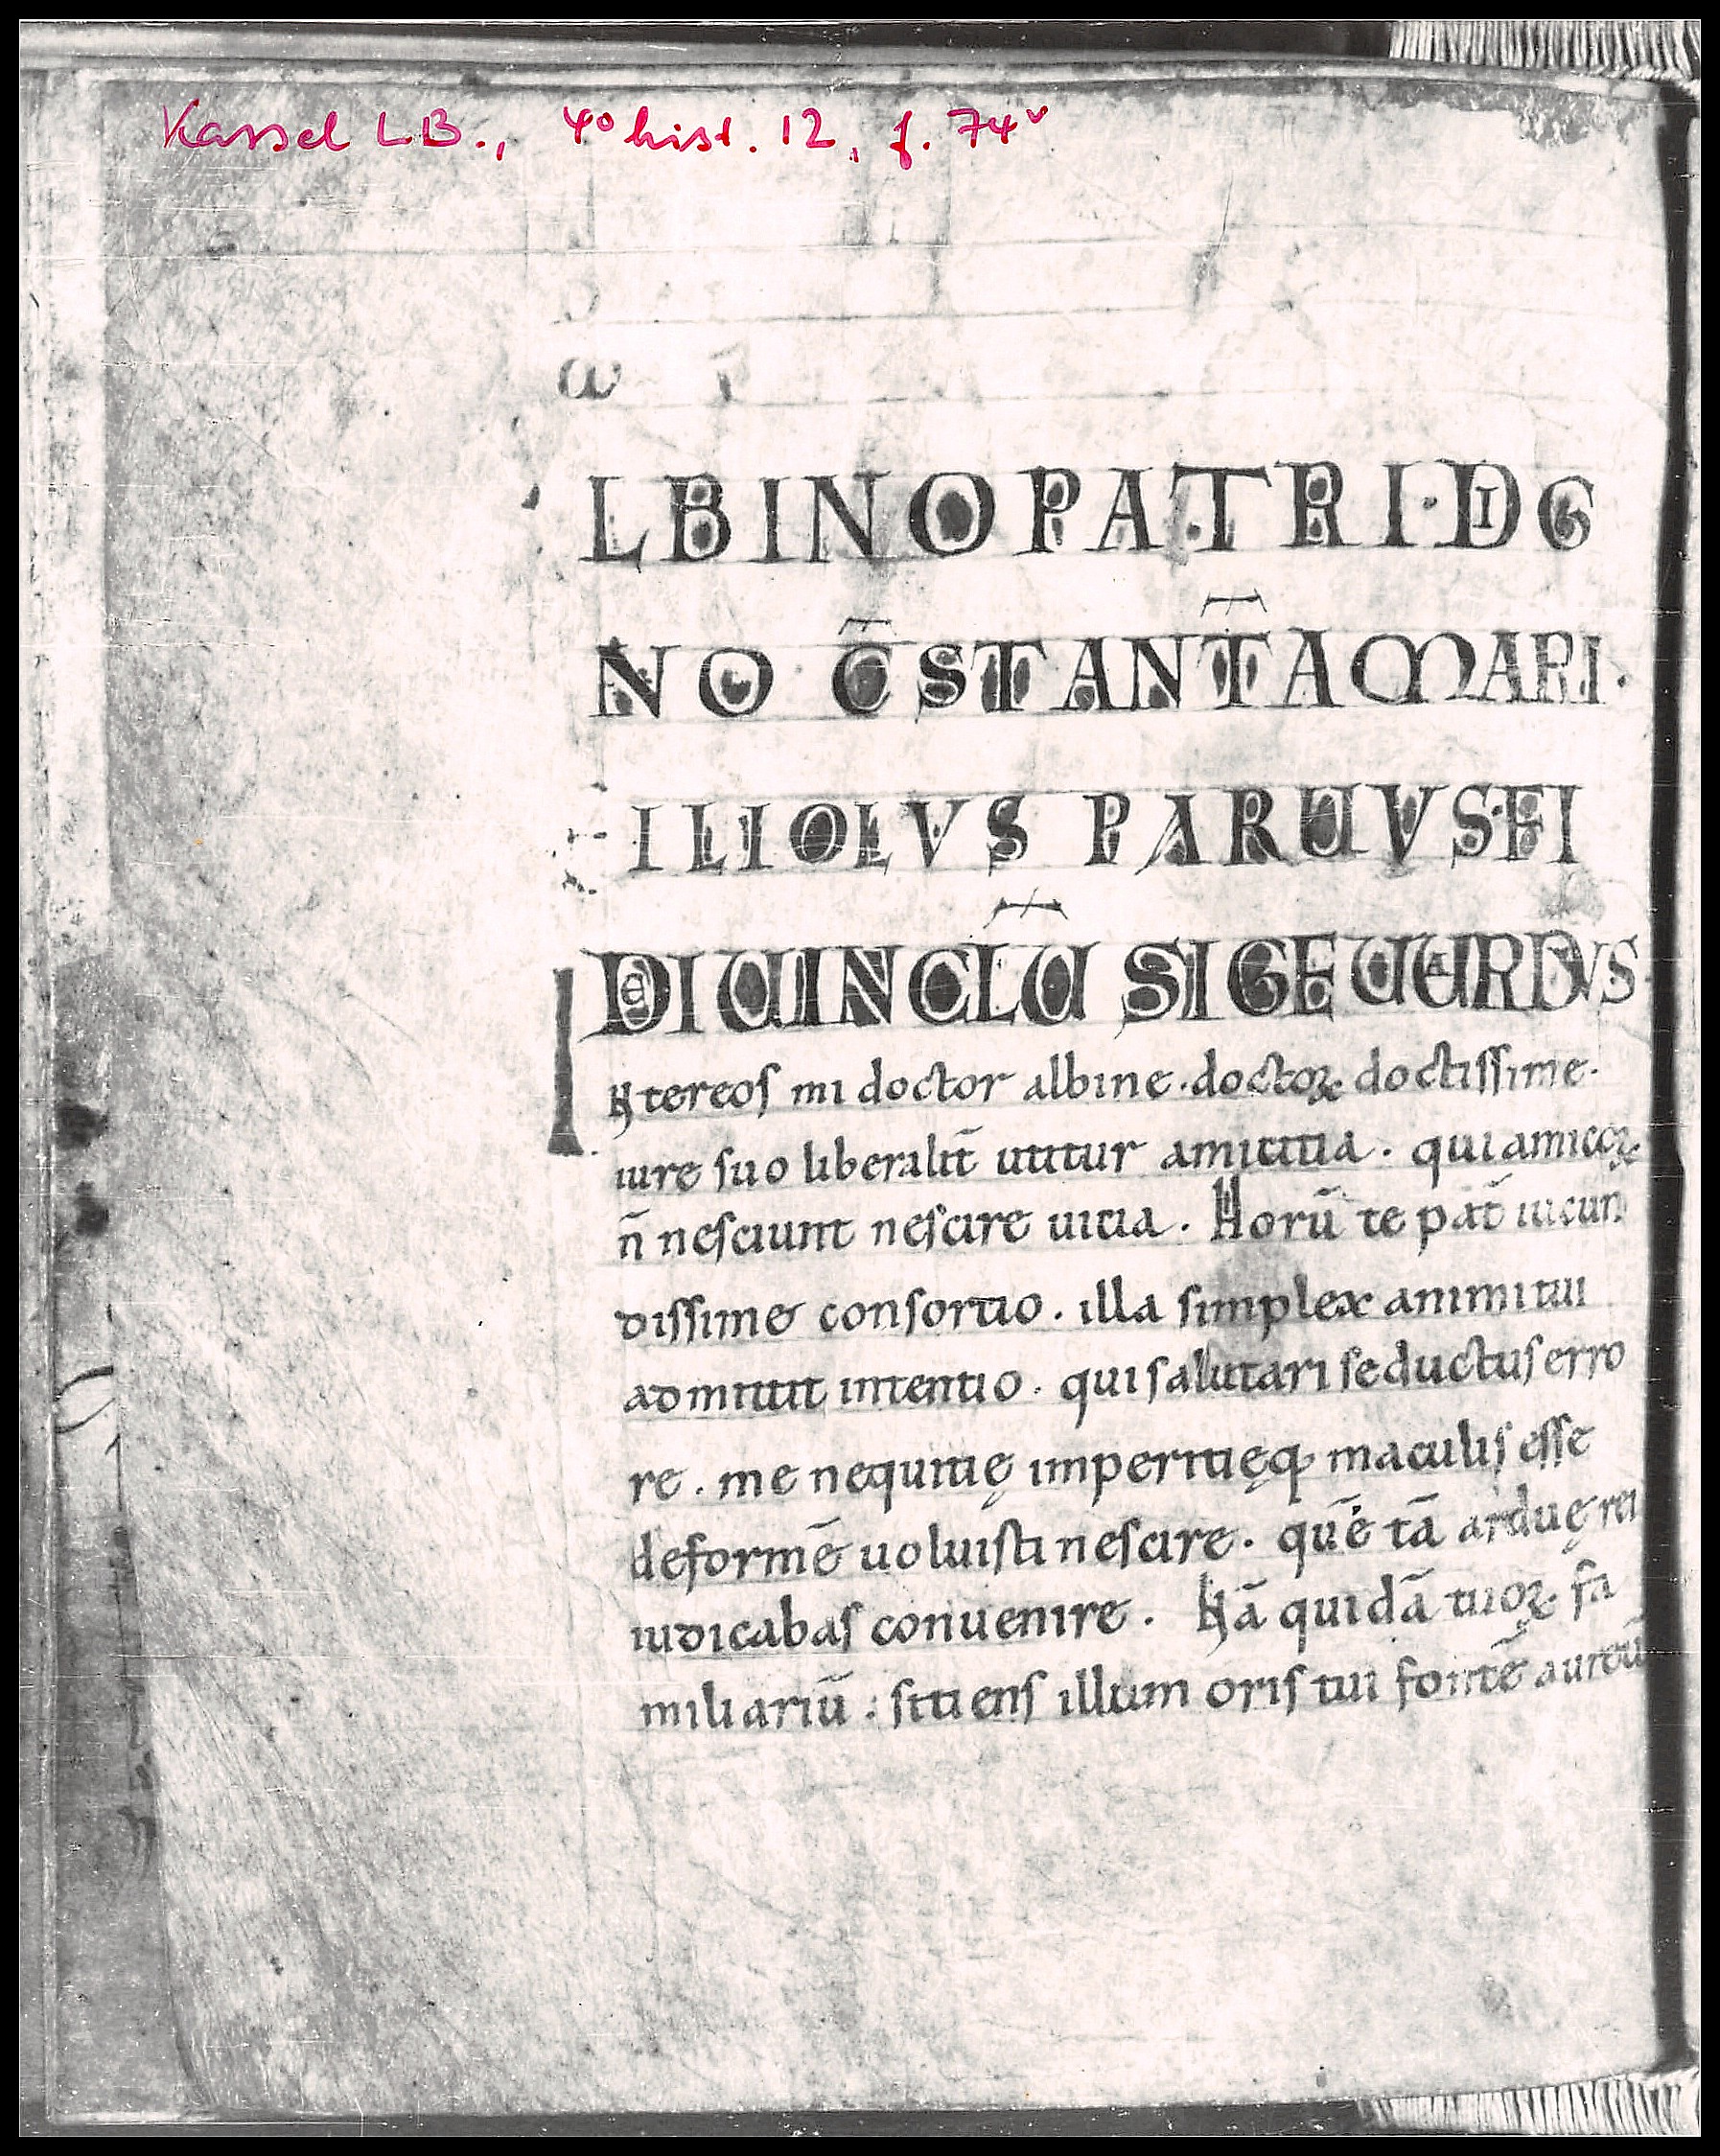 Kassel LB., 4° hist. 12, f. 74v
ω
LBINO PATRI· DIG
NO C̄STANT̄A MARI·
ILIOLVS PARUVS· FI
DEI UINCLŪ SIGEUUERDUS
I Nter eos mi doctor albine· doctoꝝ doctissime·
iure suo liberalit̄ utitur amicitia· qui amicoꝝ
n̄ nesciunt nescire uitia· Horū te pat̄ iucun
dissime consortio· illa simplex animi tui
admittit intentio· qui salutari seductus erro
re· me nequitię imperitięq; maculis esse
deformē uoluisti nescire· quē tā arduę rei
iudicabas conuenire· Nā quidā tuoꝝ fa
miliariū: sitiens illum oris tui fontē aureū